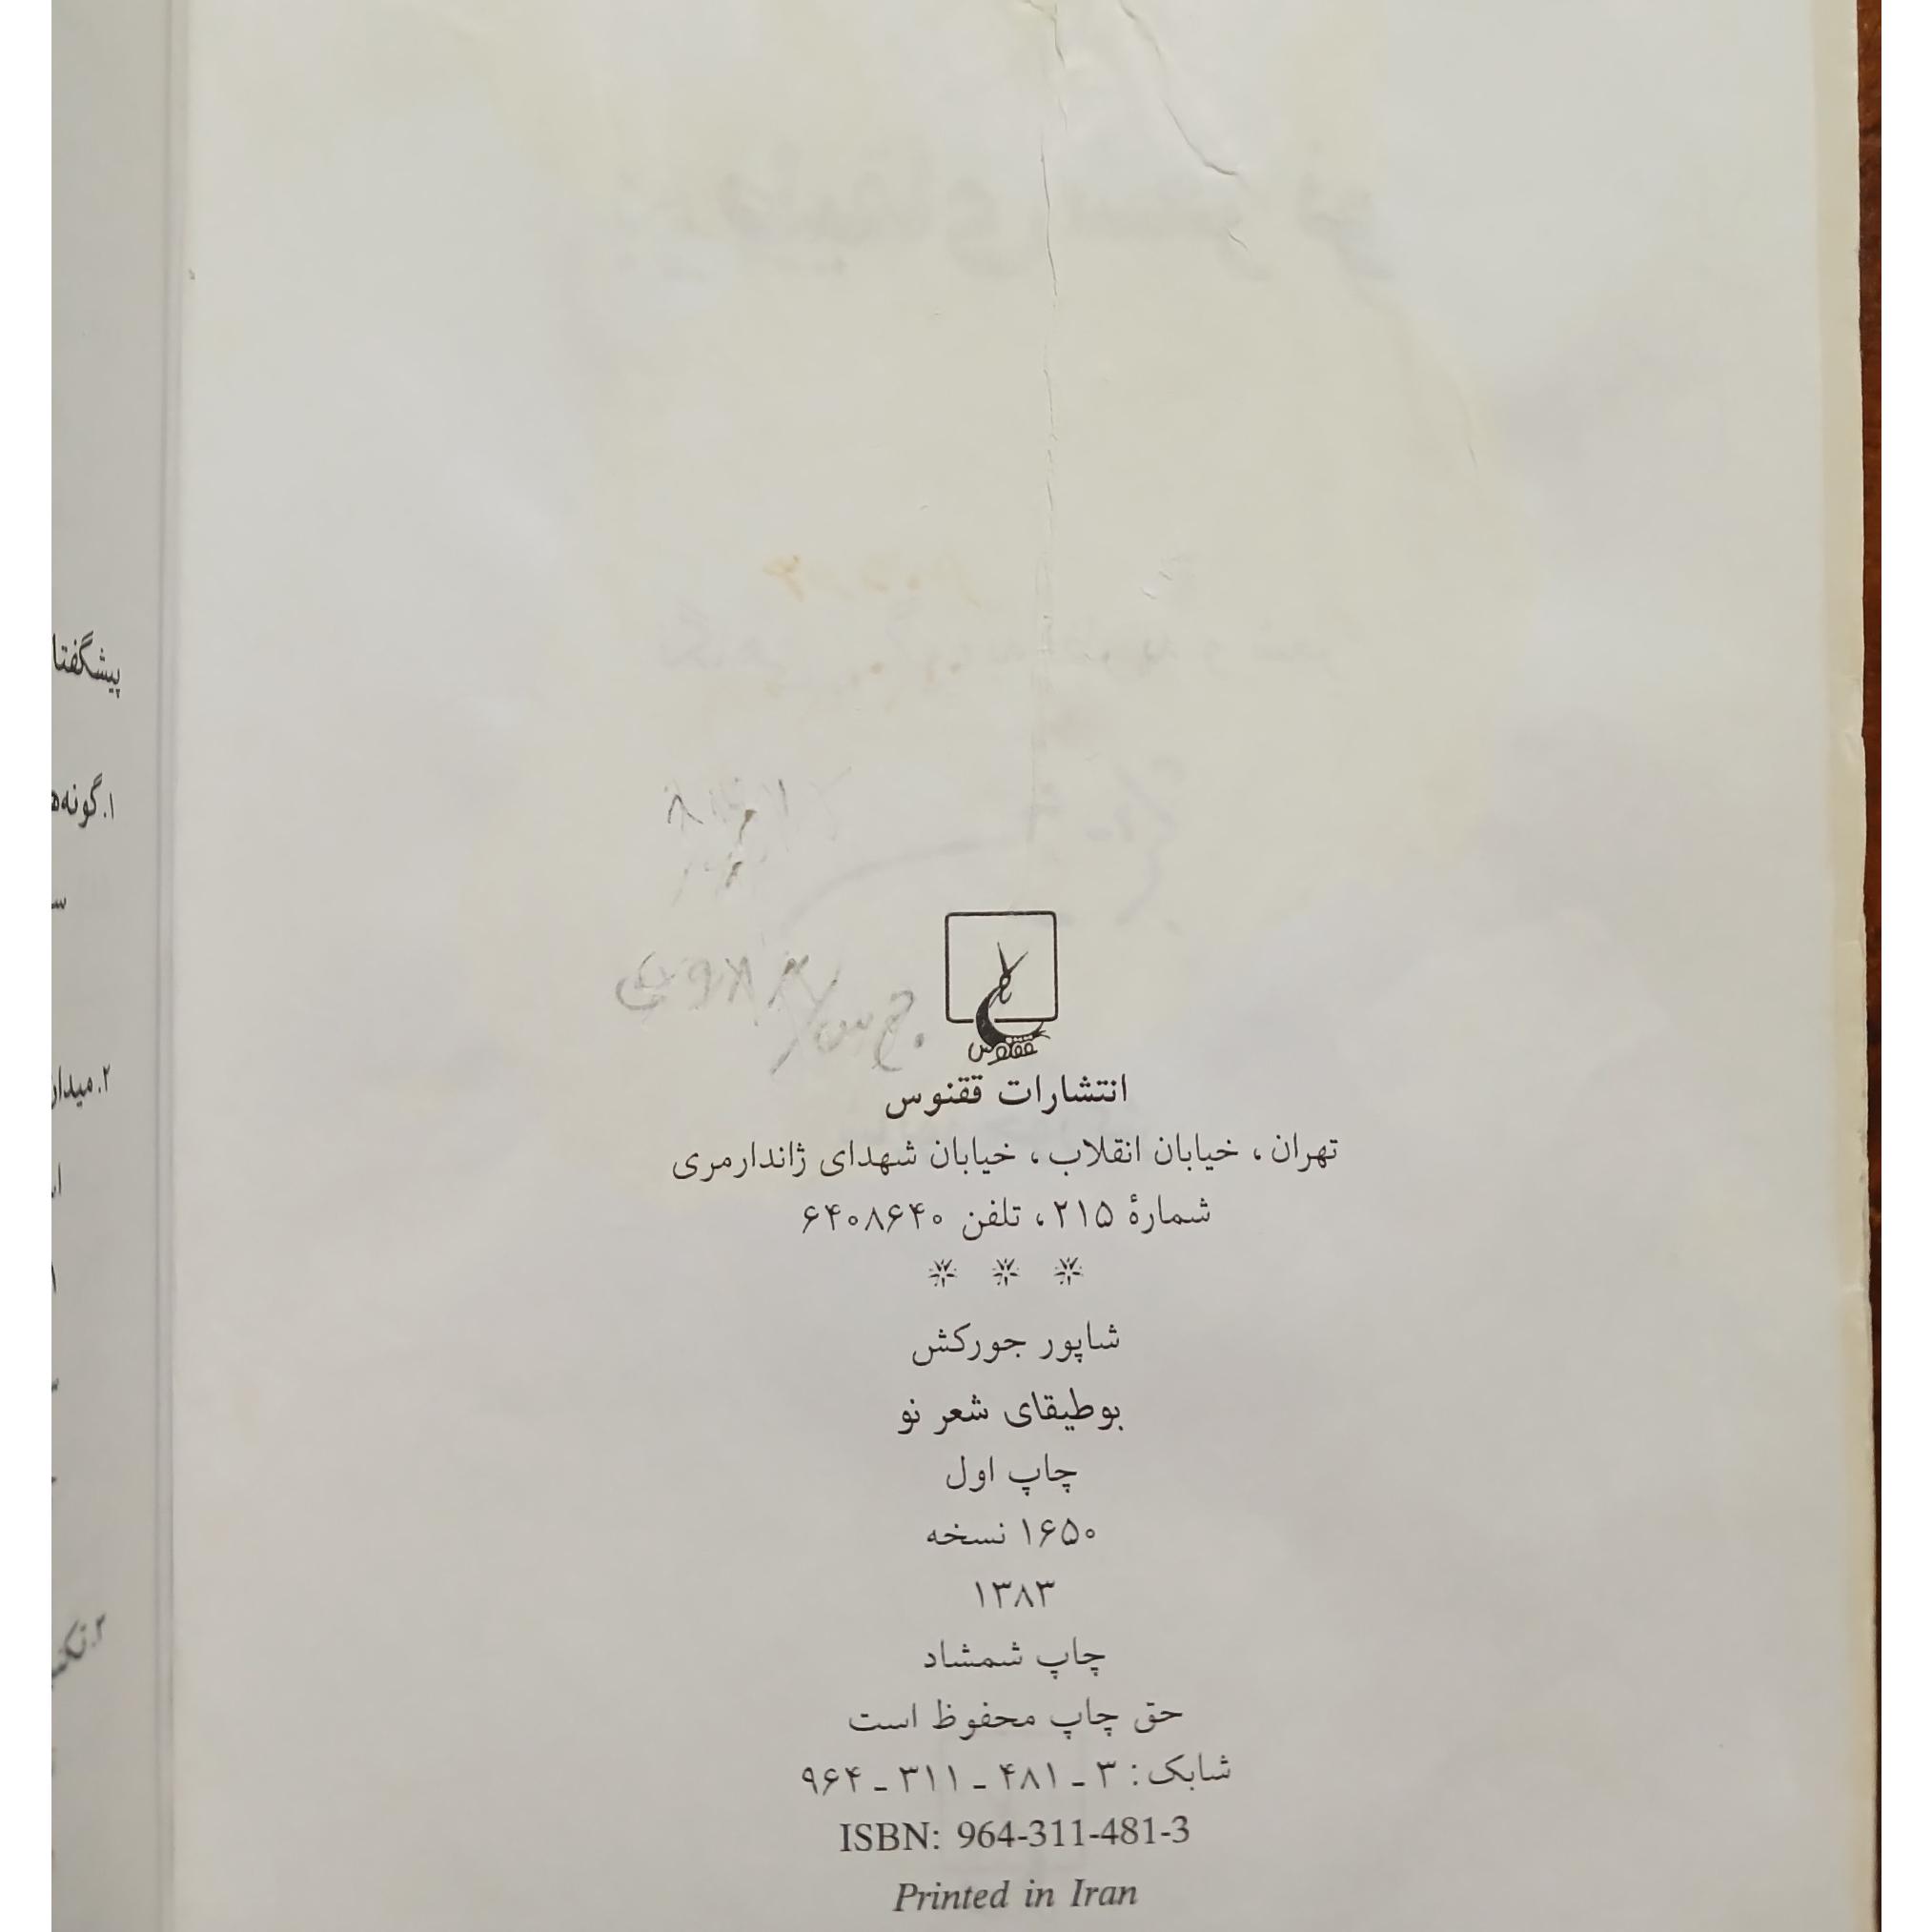 ققنوس
انتشارات ققنوس
تهران، خیابان انقلاب، خیابان شهدای ژاندارمری
شمارهٔ ۲۱۵، تلفن ۶۴۰۸۶۴۰
* * *
شاپور جورکش
بوطیقای شعر نو
چاپ اول
۱۶۵۰ نسخه
۱۳۸۳
چاپ شمشاد
حق چاپ محفوظ است
شابک: ۳ ـ ۴۸۱ ـ ۳۱۱ ـ ۹۶۴
ISBN: 964-311-481-3
Printed in Iran
پیشگفتا
۱. گونه‌ه
۲. میدان